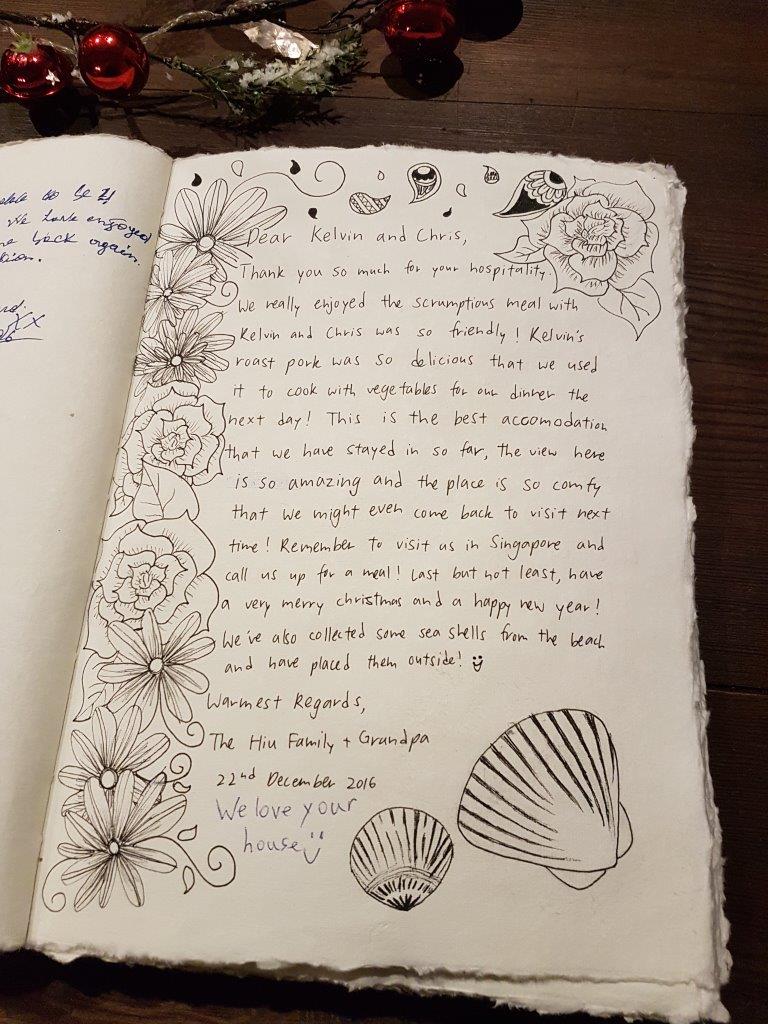 to be
We have enjoyed
back again.
Dear Kelvin and Chris,
Thank you so much for your hospitality.
We really enjoyed the scrumptious meal with
Kelvin and Chris was so friendly! Kelvin's
roast pork was so delicious that we used
it to cook with vegetables for our dinner the
next day! This is the best accomodation
that we have stayed in so far, the view here
is so amazing and the place is so comfy
that we might even come back to visit next
time! Remember to visit us in Singapore and
call us up for a meal! Last but not least, have
a very merry christmas and a happy new year!
We've also collected some sea shells from the beach
and have placed them outside!
Warmest Regards,
The Hiu Family + Grandpa
22nd December 2016
We love your
house